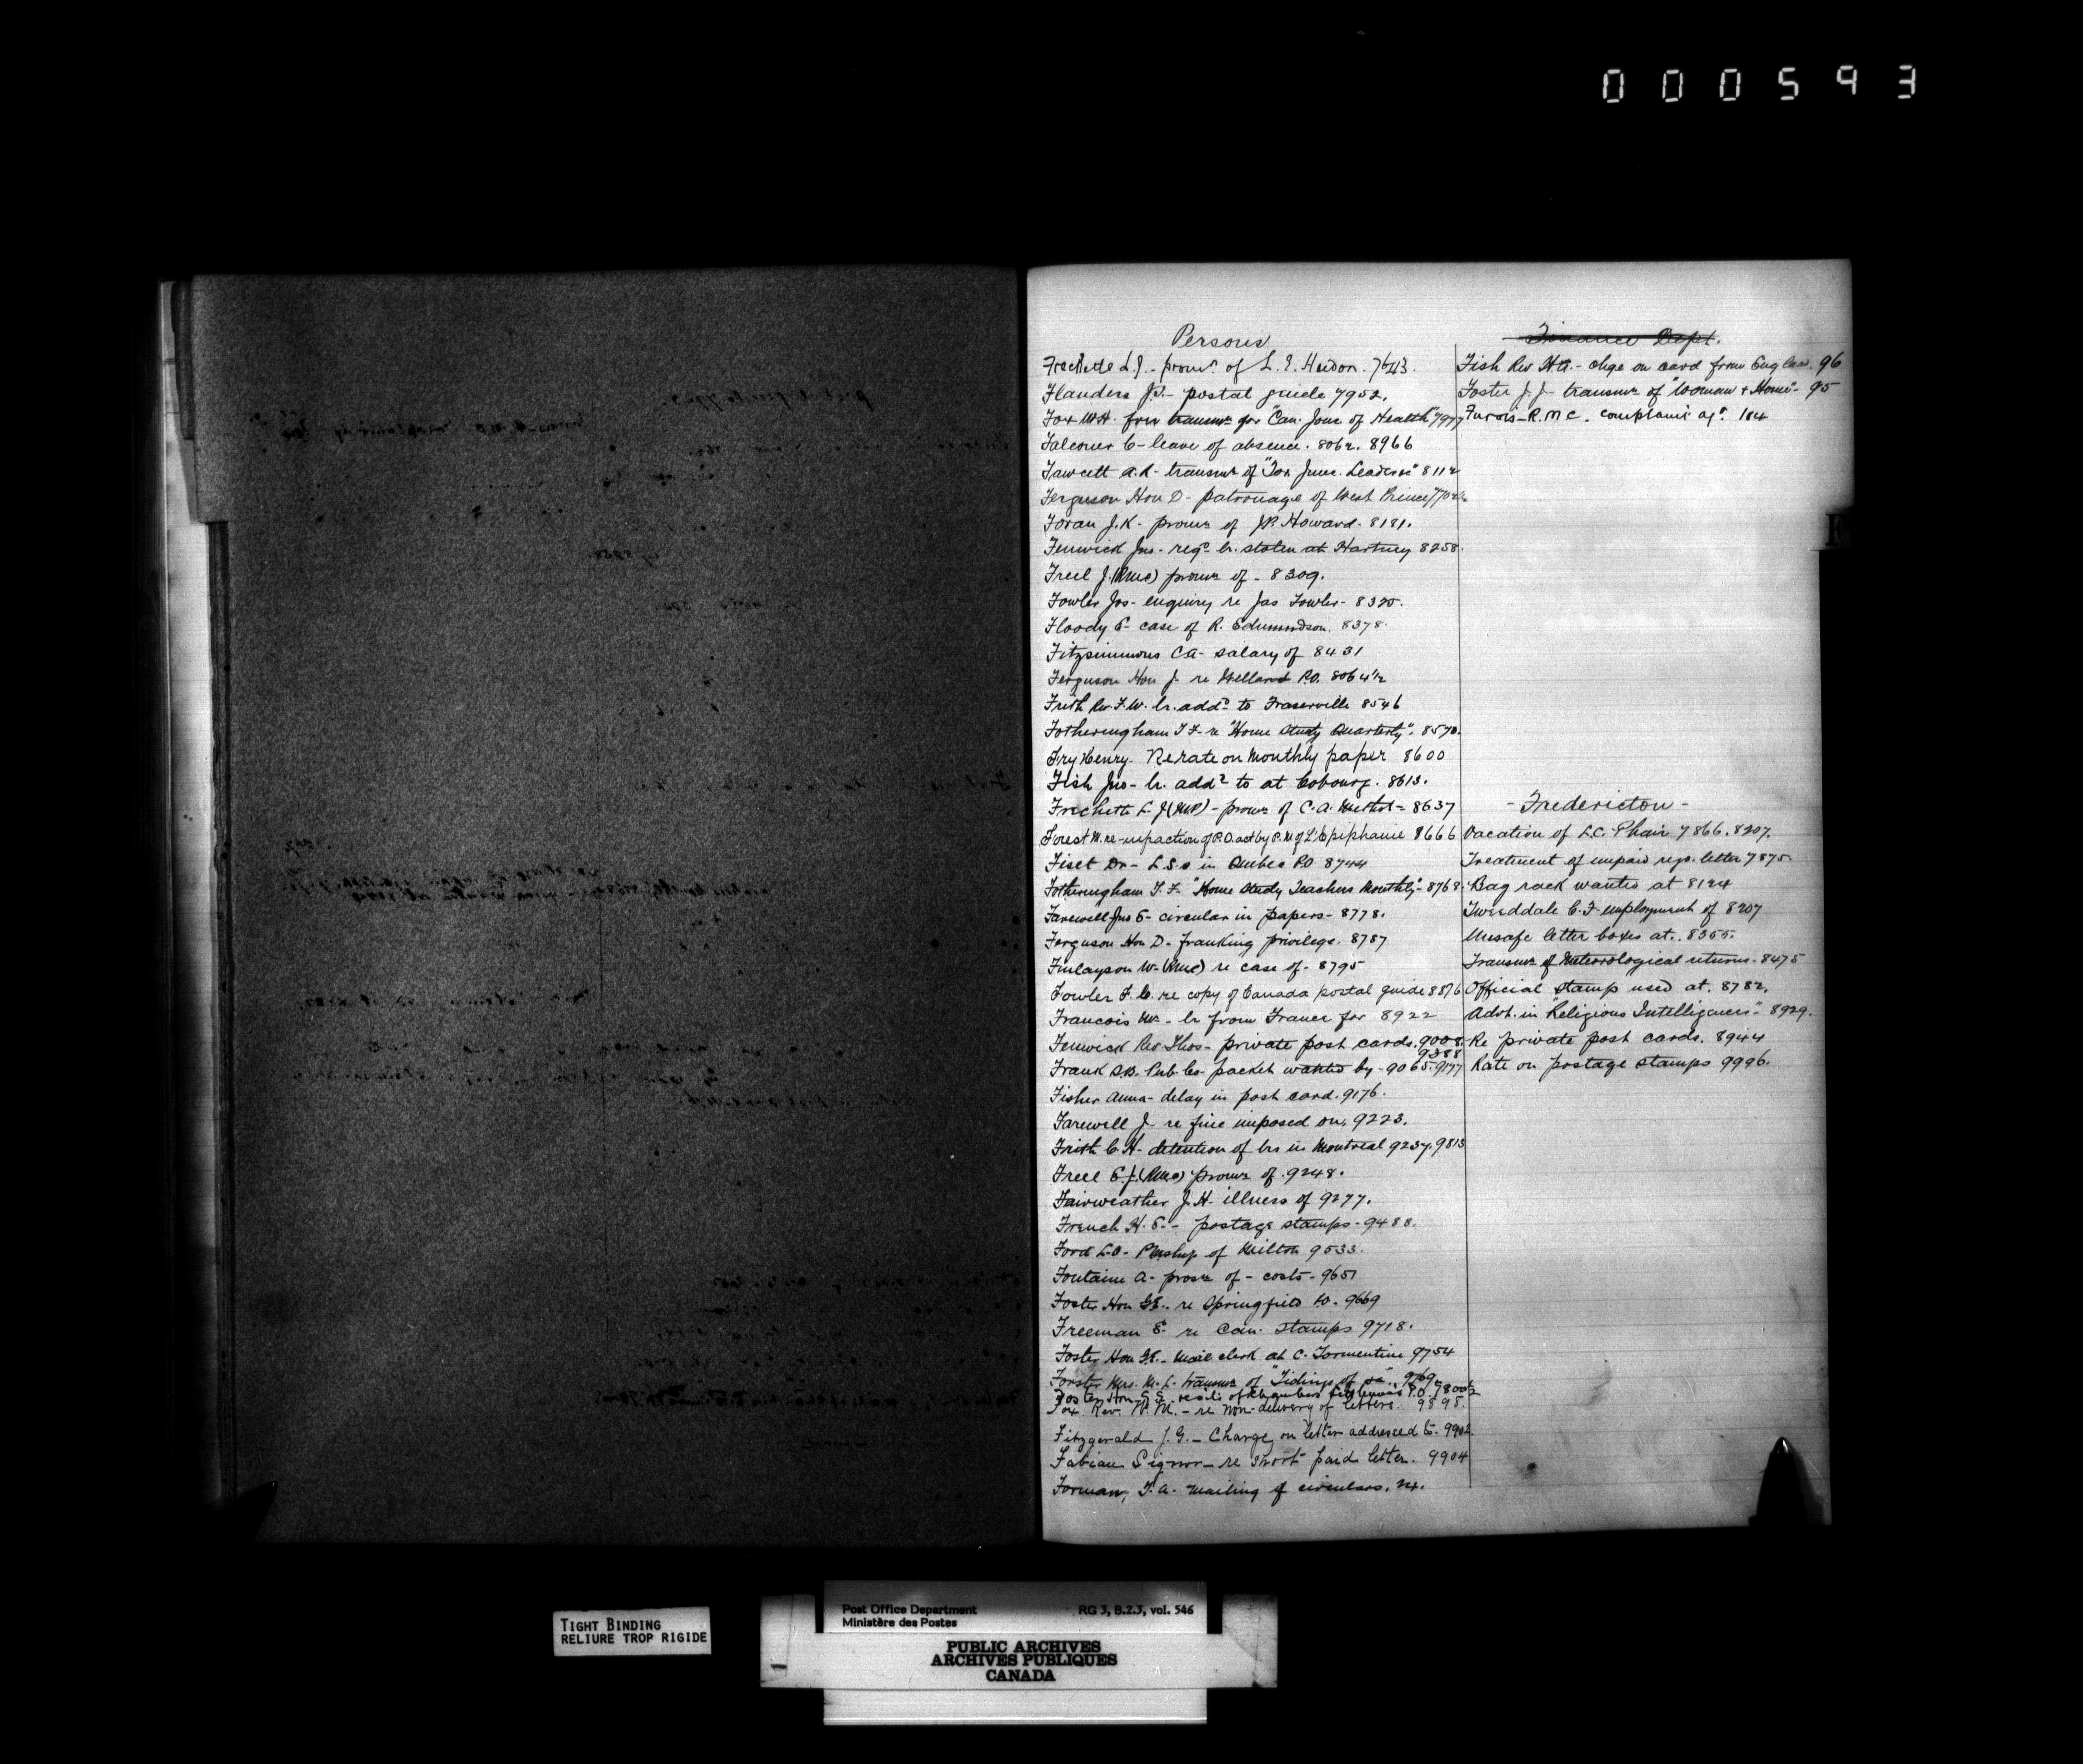 000593
Persons
Frechette L.J. - promn. of L. E. Hudon. 7643.
Flanders J.J. - postal guide 7952.
Fox W.H. transmn for "Can. Jour. of Health" 7977
Falconer C - leave of absence. 8062. 8966
Fawcett A.R - transmn of "Tor June. Leader" 8112
Ferguson Hon D - patronage of West Prince
Foran J.K - promn of J.P. Howard - 8181.
Fenwick Jno - regd lr. stolen at Hartney 8258.
Freel J. (RMC) promn of - 8309.
Fowler Jos - enquiry re Jas Fowler - 8325.
Floody E - case of R. Edmundson. 8378.
Fitzsimmons CA - salary of 8431
Ferguson Hon J. re Welland P.O. 8064½
Frith Rev F.W. lr. addd to Fraserville 8546
Fotheringham T F - re "Home Study Quarterly". 8570.
Fry Henry. Re rate on Monthly paper 8600
Fish Jno - lr. addd to at Cobourg. 8613.
Frechette L.J (MP) - promn of C.A. Methot - 8637
Forest M. re - of P.O. act by P.M of L'Epiphanie 8666
Fiset Dr - L.S.O in Quebec P.O 8744
Fotheringham T. F. "Home Study Teachers Monthly" - 8768.
Farewell Jno E - circular in papers - 8778.
Ferguson Hon D - franking privilege. 8787
Finlayson W - (RMC) re case of - 8795
Fowler F. C. re copy of Canada postal guide 8876
Francois Mr - lr from France for 8922
Fenwick Rev Thos - private post cards. 9008.
9388
Frank S.B. Pub Co - packet wanted by - 9065. 9177
Fisher Anna - delay in post card. 9176.
Farewell J - re fine imposed on, 9223.
Frith C.H - detention of lrs in Montreal 9237. 9813
Freel E.J. (RMC) promn of. 9248.
Fairweather J.H - illness of 9277.
French H. E. - postage stamps - 9488.
Ford L.O - PMship of Milton 9533.
Fontaine A - prosn of - costs - 9651
Foster Hon G.E. - re Springfield P.O. - 9669
Freeman E - re Can. stamps 9718.
Foster Hon G.E. - Mail clerk at C. Tormentine 9754
Forster Mrs. M. L. transmn of "Tidings of" 9769
Foster Hon G.E. re of Chambers P.O. 9800½
Fox Rev. W. M. - re non-delivery of letters. 9895.
Fitzgerald J. G. - Charge on letter addressed to. 9902.
Fabian Signor - re short paid letter. 9904
Forman, T. A. - mailing of circulars. 24.
Finance Dept.
Fish Rev H.A. - chge on card from England. 96
Foster J. J - transmn of "Woman & Home" - 95
Furois - R.M.C. complaint agt. 104
- Fredericton -
Vacation of L.C. Phair 7866. 8207.
Treatment of unpaid regd. letter 7875.
Bag rack wanted at 8124
Tweeddale C. F employment of 8207
Unsafe letter boxes at. 8355.
Transmn of Meteorological returns - 8475
Official stamp used at. 8782.
Advt. in "Religious Intelligencer" - 8929.
Re private post cards. 8944
Rate on postage stamps 9996.
F
TIGHT BINDING
RELIURE TROP RIGIDE
Post Office Department RG 3, B.2.3, vol. 546
Ministère des Postes
PUBLIC ARCHIVES
ARCHIVES PUBLIQUES
CANADA